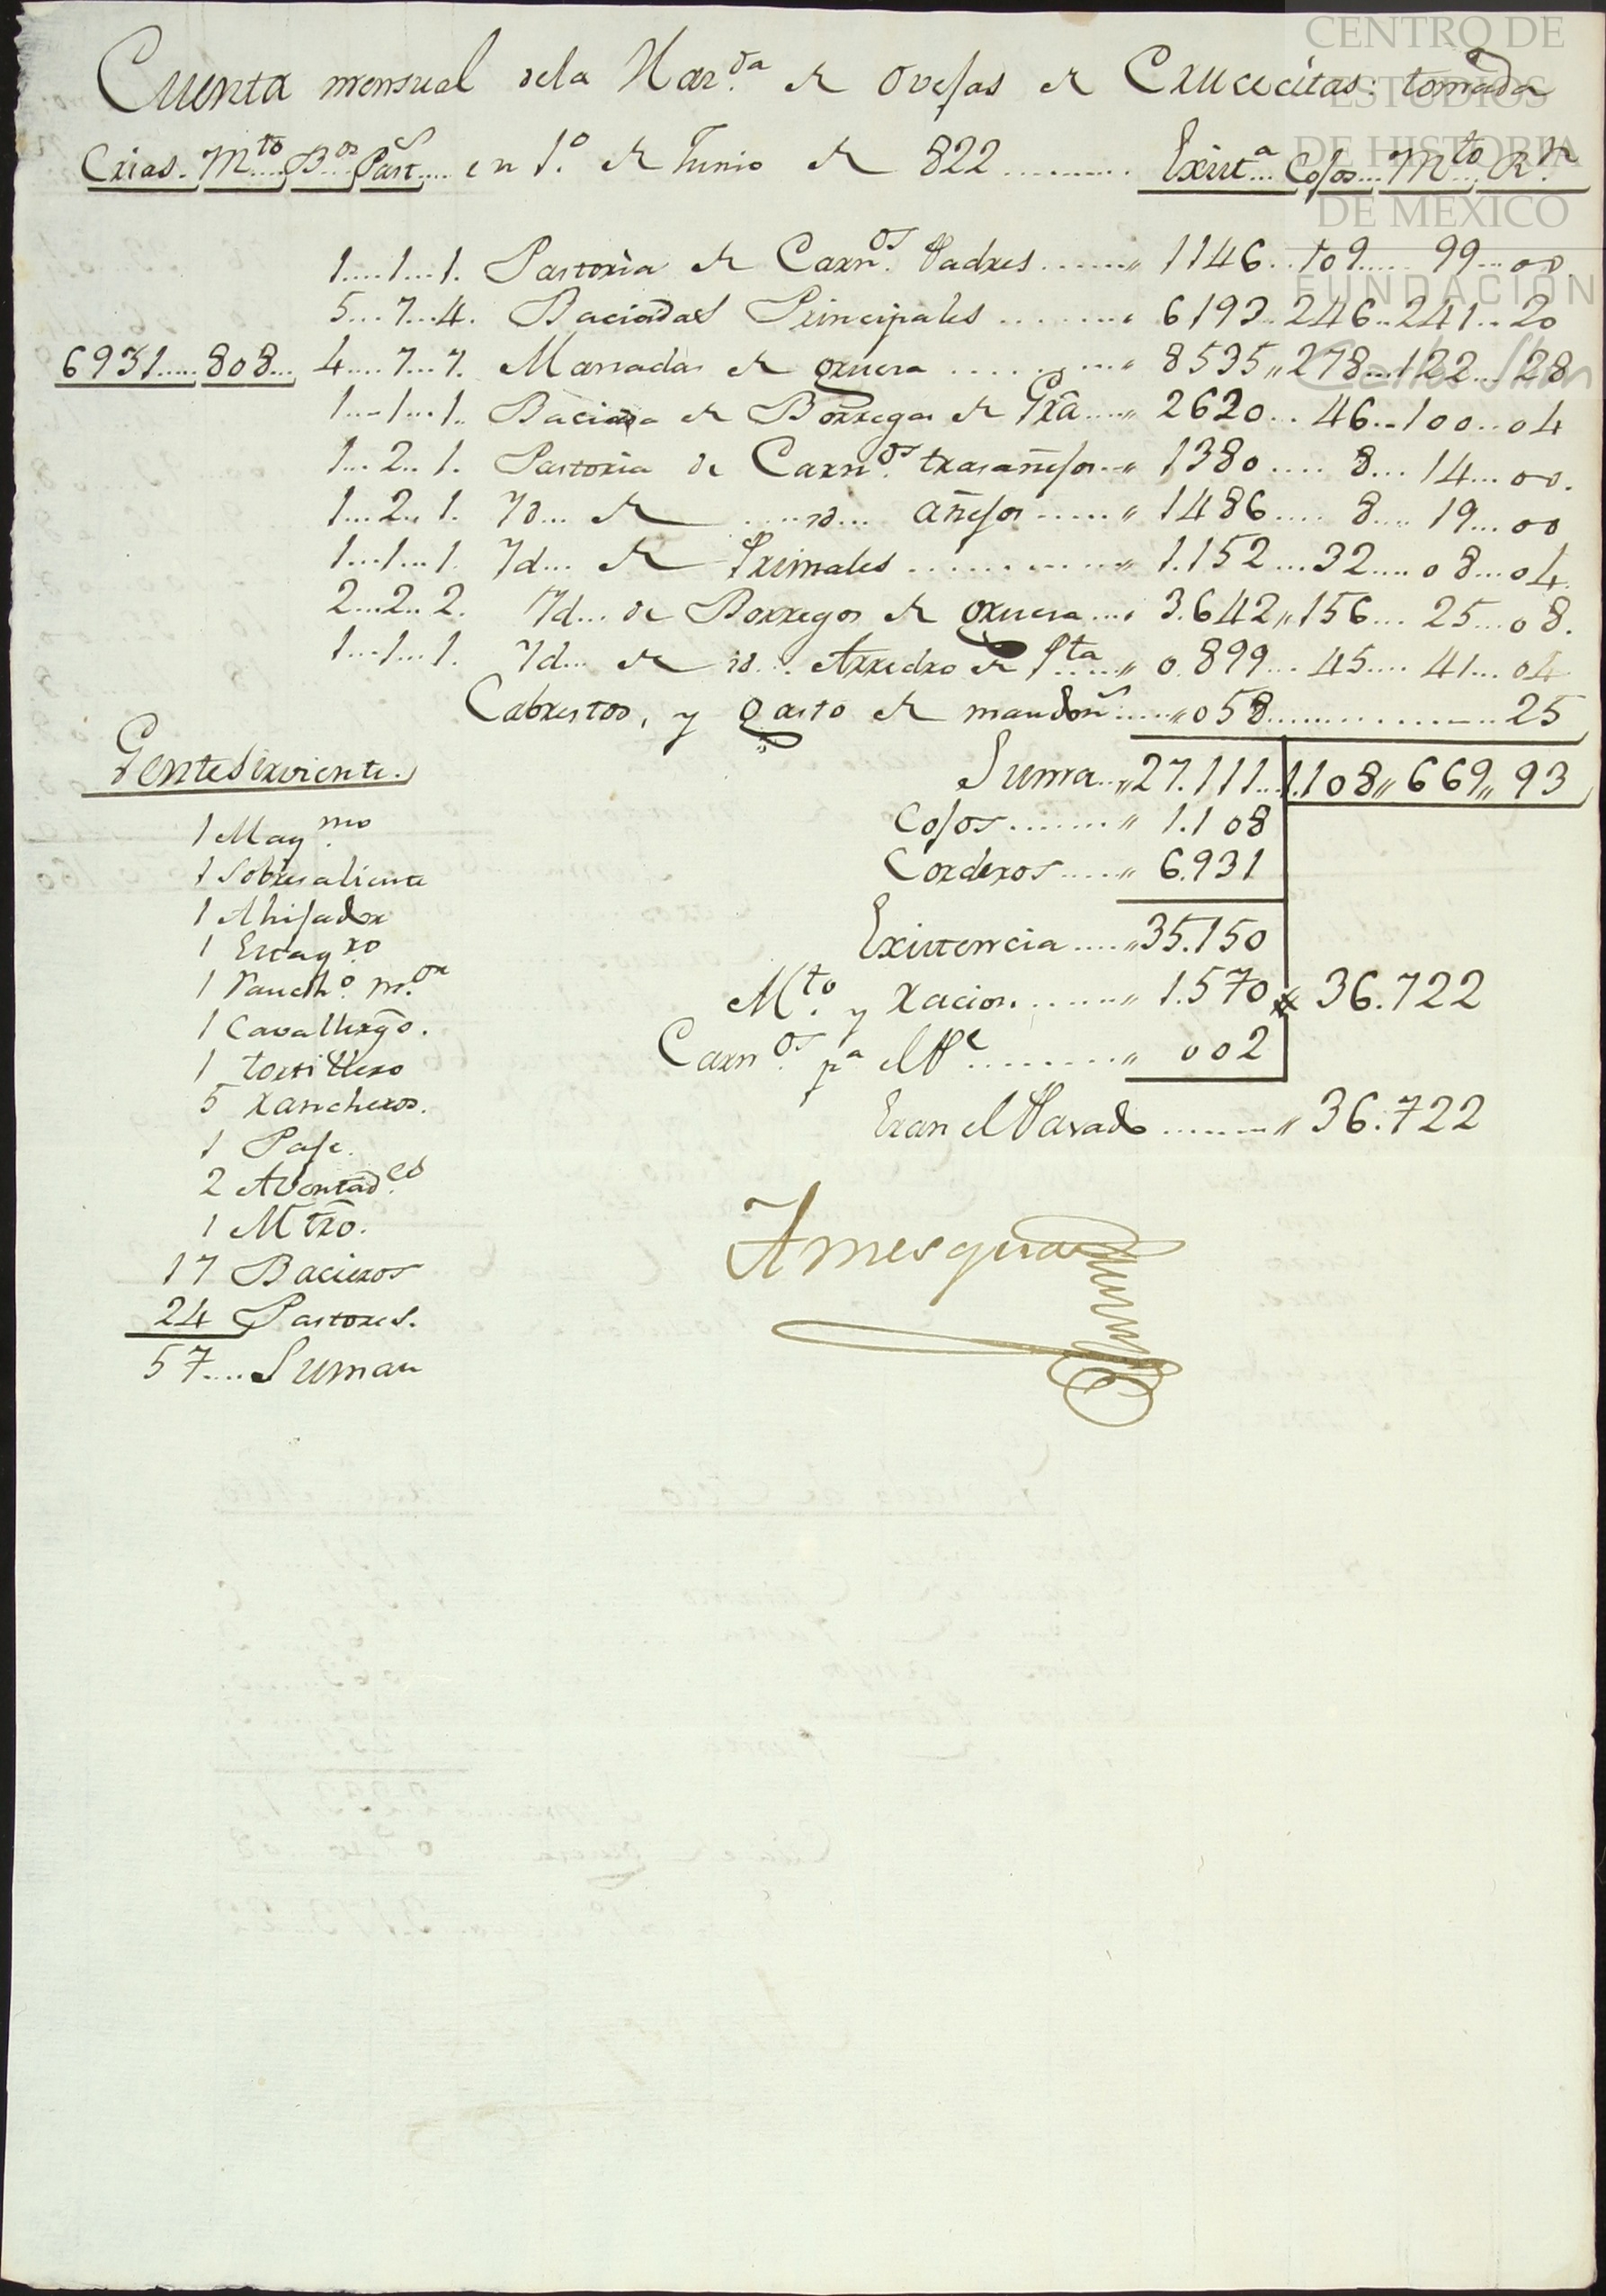 CENTRO DE
ESTUDIOS
DE HISTORIA
DE MÉXICO
FUNDACIÓN
Carlos Slim
Cuenta mensual dela Har.da de ovejas de Crucecitas: tomada
Crias. Mto.... Bos... Past.... en 1.o de Junio de 822 .......... Exist.a... Cojos... Mto... R.n
1....1...1. Pastoria de Carn.os Padres ........" 1146...109..... 99...00.
5...7...4. Baciadas Principales .........." 6193..246..241...20
6931.....808... 4....7...7. Manadas de gruesa ............" 8535,,278...122...28
1....1...1.. Baciada de Borregas de Pta....." 2620... 46...100...04
1...2...1. Pastoria de Carn.os trasañejos..." 1380.... 8... 14...00.
1...2...1. Yd... de .....id... añejos......" 1486.... 8.... 19...00
1...1...1. Yd... de Primales ............" 1.152...32....08...04.
2...2...2. Yd... de Borregos de gruesa...." 3.642,,156... 25...08.
1...1...1. Yd... de id... Arredro de Pta....." 0.899... 45.... 41...04
Cabrestos, y gasto de mandon....." 058.....................25
Gente Sirviente.
Suma..,,27.111...1.108,,669,,93
1 May.mo
Cojos........" 1.108
1 Sobresaliente
Corderos....." 6.931
1 Ahijador
1 Estaq.ro
Existencia....,,35.150
1 Ranch.o m.or
Mto. y racion.......,, 1.570 36.722
1 Cavallerzo.
1 tortillero
Carn.os pa el Me........,, 002
5 rancheros.
Eran el Pasado ........,, 36.722
1 Paje.
2 Aventad.es
1 Mtro.
Amesquita
17 Bacieros
24 Pastores.
57.... Suman